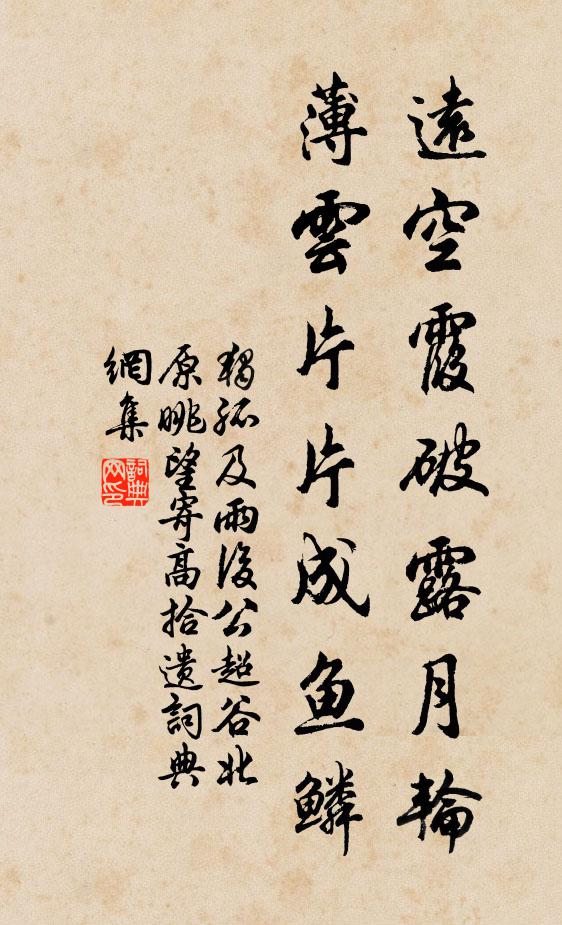 遠空霞破露月輪
薄雲片片成鱼鱗
獨孤及雨後公超谷北
原眺望寄高拾遺詞典
網集
詞典
网印